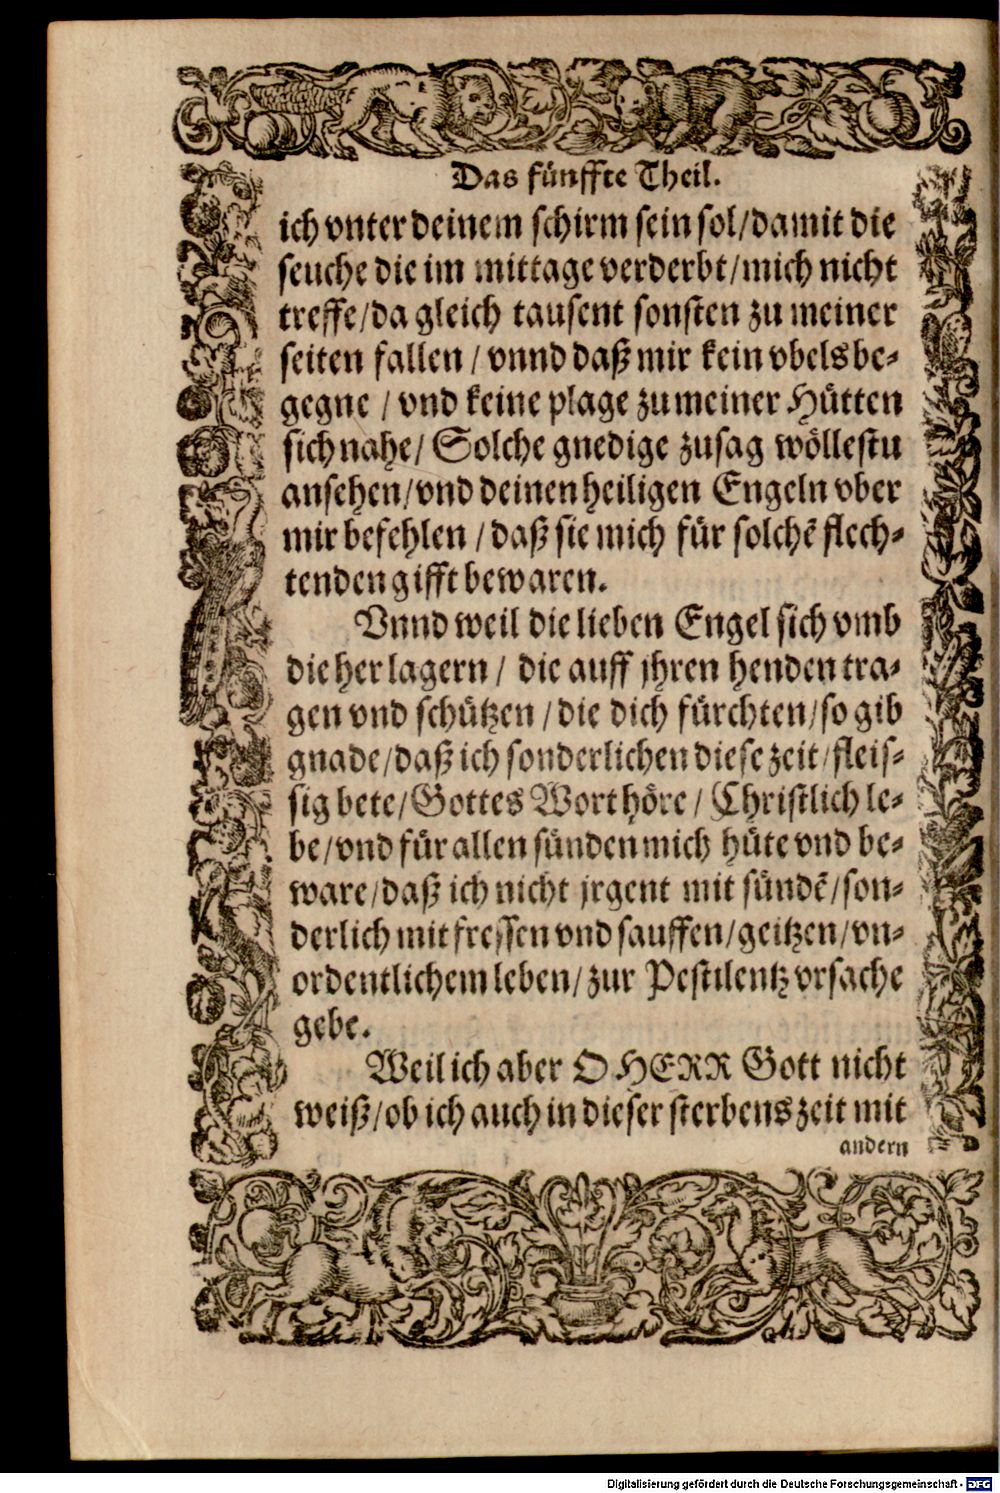 Das fünffte Theil.
ich vnter deinem schirm sein sol/damit die
seuche die im mittage verderbt/mich nicht
treffe/da gleich tausent sonsten zu meiner
seiten fallen / vnnd daß mir kein vbels be-
gegne / vnd keine plage zu meiner Hütten
sich nahe/ Solche gnedige zusag wöllestu
ansehen/vnd deinen heiligen Engeln vber
mir befehlen / daß sie mich für solchẽ flech-
tenden gifft bewaren.
Vnnd weil die lieben Engel sich vmb
die her lagern / die auff jhren henden tra-
gen vnd schützen / die dich fürchten/so gib
gnade/daß ich sonderlichen diese zeit/fleis-
sig bete/Gottes Wort höre / Christlich le-
be/vnd für allen sünden mich hüte vnd be-
ware/daß ich nicht jrgent mit sündẽ/son-
derlich mit fressen vnd sauffen/geitzen/vn-
ordentlichem leben/zur Pestilentz vrsache
gebe.
Weil ich aber O HERR Gott nicht
weiß/ob ich auch in dieser sterbens zeit mit
andern
Digitalisierung gefördert durch die Deutsche Forschungsgemeinschaft - DFG